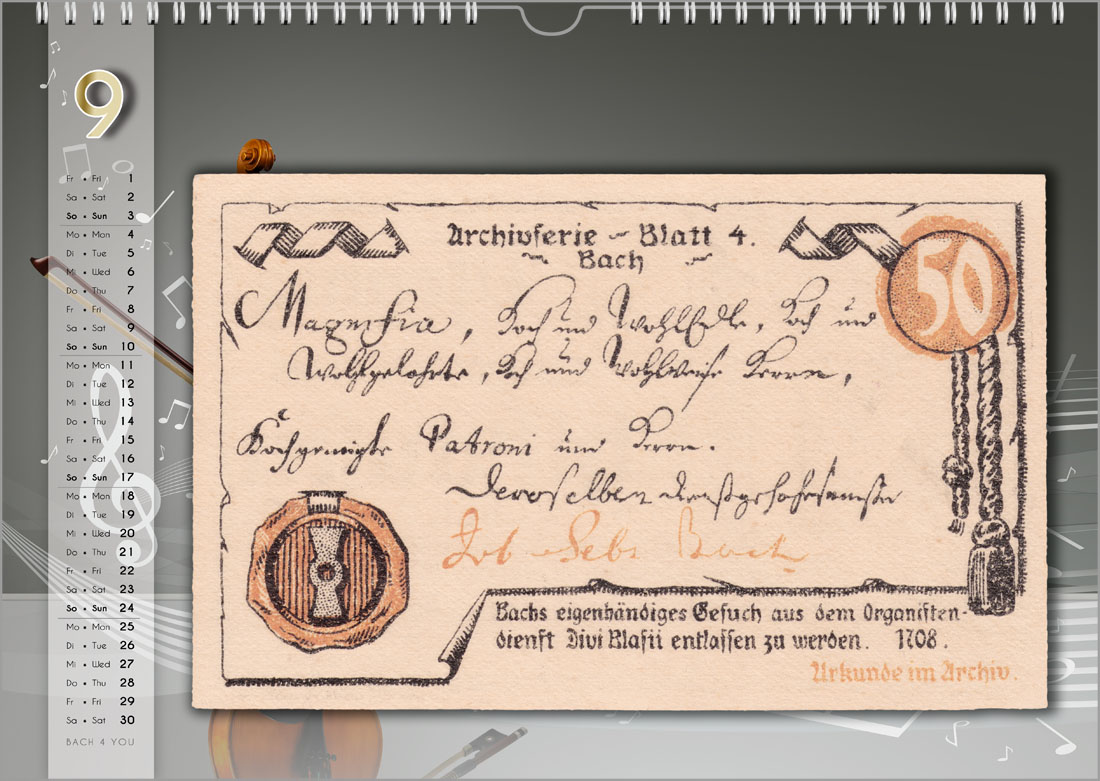 9
Fr • Fri 1
Sa • Sat 2
So • Sun 3
Mo • Mon 4
Di • Tue 5
Mi • Wed 6
Do • Thu 7
Fr • Fri 8
Sa • Sat 9
So • Sun 10
Mo • Mon 11
Di • Tue 12
Mi • Wed 13
Do • Thu 14
Fr • Fri 15
Sa • Sat 16
So • Sun 17
Mo • Mon 18
Di • Tue 19
Mi • Wed 20
Do • Thu 21
Fr • Fri 22
Sa • Sat 23
So • Sun 24
Mo • Mon 25
Di • Tue 26
Mi • Wed 27
Do • Thu 28
Fr • Fri 29
Sa • Sat 30
BACH 4 YOU
Archivserie - Blatt 4.
Bach
50
Magnifia, Hoch und WohlEdle, Hoch und
Wohlgelahrte, Hoch und Wohlweise Herren,
Hochgeneigte Patroni und Herrn.
Derosselben
Joh Sebs Bach
Bachs eigenhändiges Gesuch aus dem Organisten-
dienst Divi Blasii entlassen zu werden. 1708.
Urkunde im Archiv.